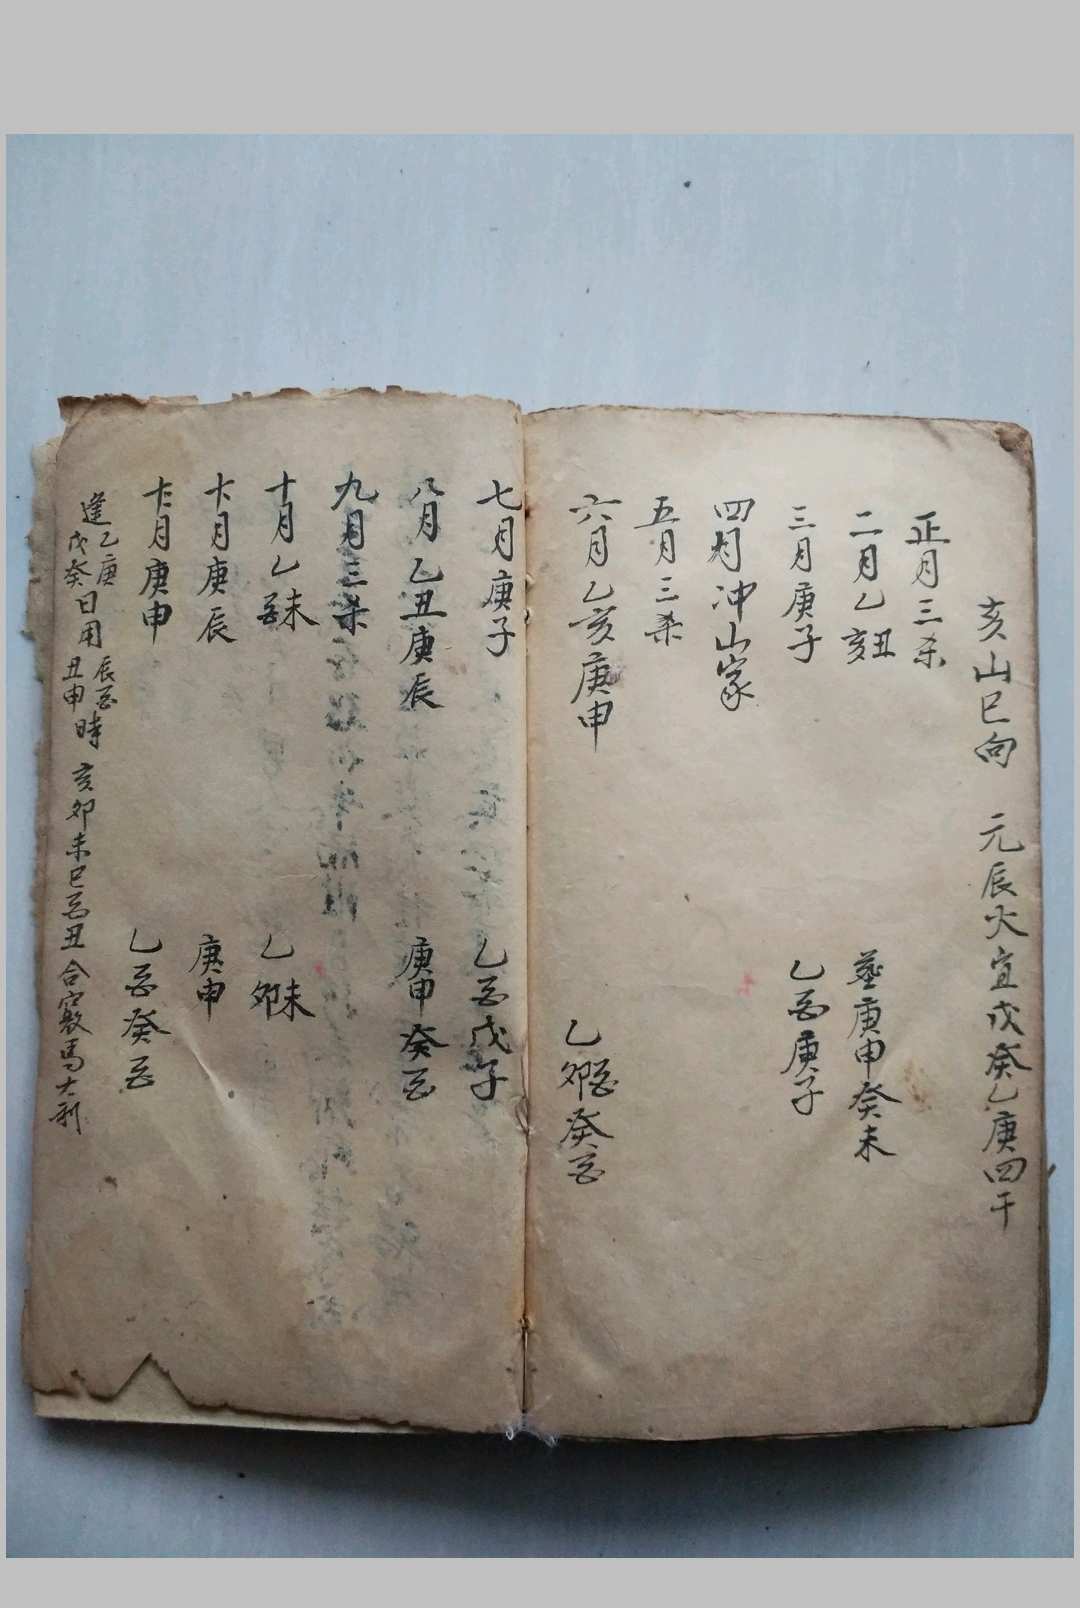 亥山巳向　元辰火宜戊癸乙庚四干
正月三杀
二月乙亥丑　葬庚申癸未
三月庚子　乙酉庚子
四月冲山家
五月三杀
六月乙亥庚申　乙卯酉癸酉
七月庚子　乙酉戊子
八月乙丑庚辰　庚申癸酉
九月三杀
十月乙酉未　乙卯未
十一月庚辰　庚申
十二月庚申　乙酉癸酉
逢乙庚戊癸日用辰酉丑申時　亥卯未巳酉丑合竅馬大利